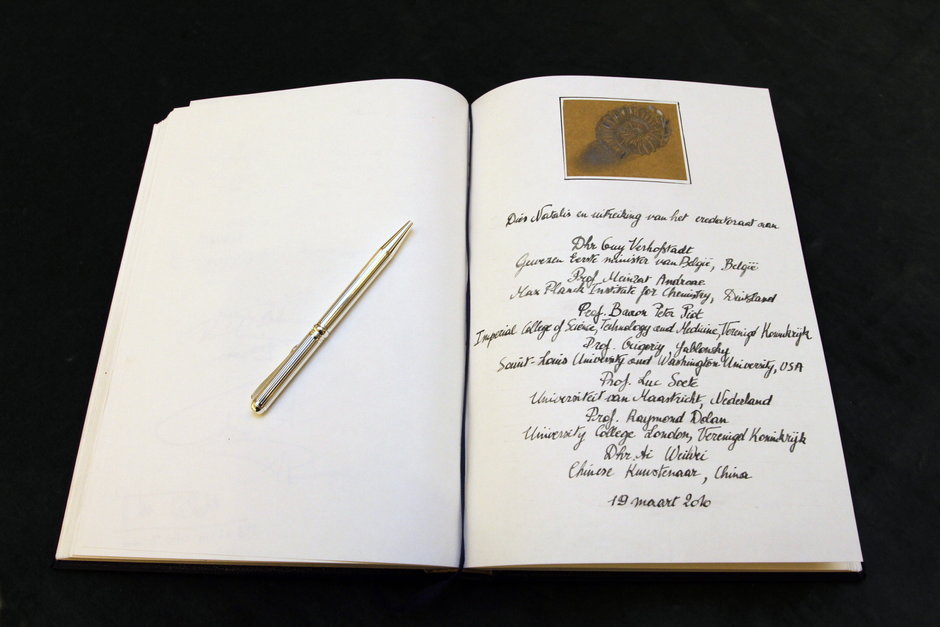 Dies Natalis en uitreiking van het eredoctoraat aan
Dhr Guy Verhofstadt
Gewezen Eerste minister van België, België
Prof. Meinrat Andreae
Max Planck Institute for Chemistry, Duitsland
Prof. Baron Peter Piot
Imperial College of Science, Technology and Medicine, Verenigd Koninkrijk
Prof. Grigoriy Yablonsky
Saint-Louis University and Washington University, USA
Prof. Luc Soete
Universiteit van Maastricht, Nederland
Prof. Raymond Dolan
University College London, Verenigd Koninkrijk
Dhr. Ai Weiwei
Chinese Kunstenaar, China
19 maart 2010